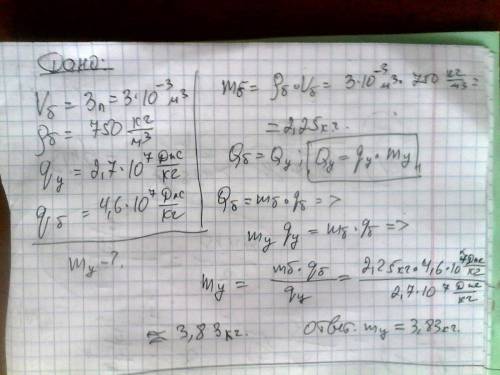 Дано:
Vб = 3л = 3·10⁻³ м³
ρб = 750 кг/м³
qу = 2,7·10⁷ Дж/кг
qб = 4,6·10⁷ Дж/кг
mу - ?
mб = ρб·Vб = 3·10⁻³ м³ · 750 кг/м³ =
= 2,25 кг.
Qб = Qу ; Qу = qу · mу
Qб = mб · qб =>
mу qу = mб · qб =>
mу = mб · qб / qу = 2,25 кг · 4,6·10⁷ Дж/кг / 2,7·10⁷ Дж/кг
≈ 3,83 кг.
Ответ: mу = 3,83 кг.